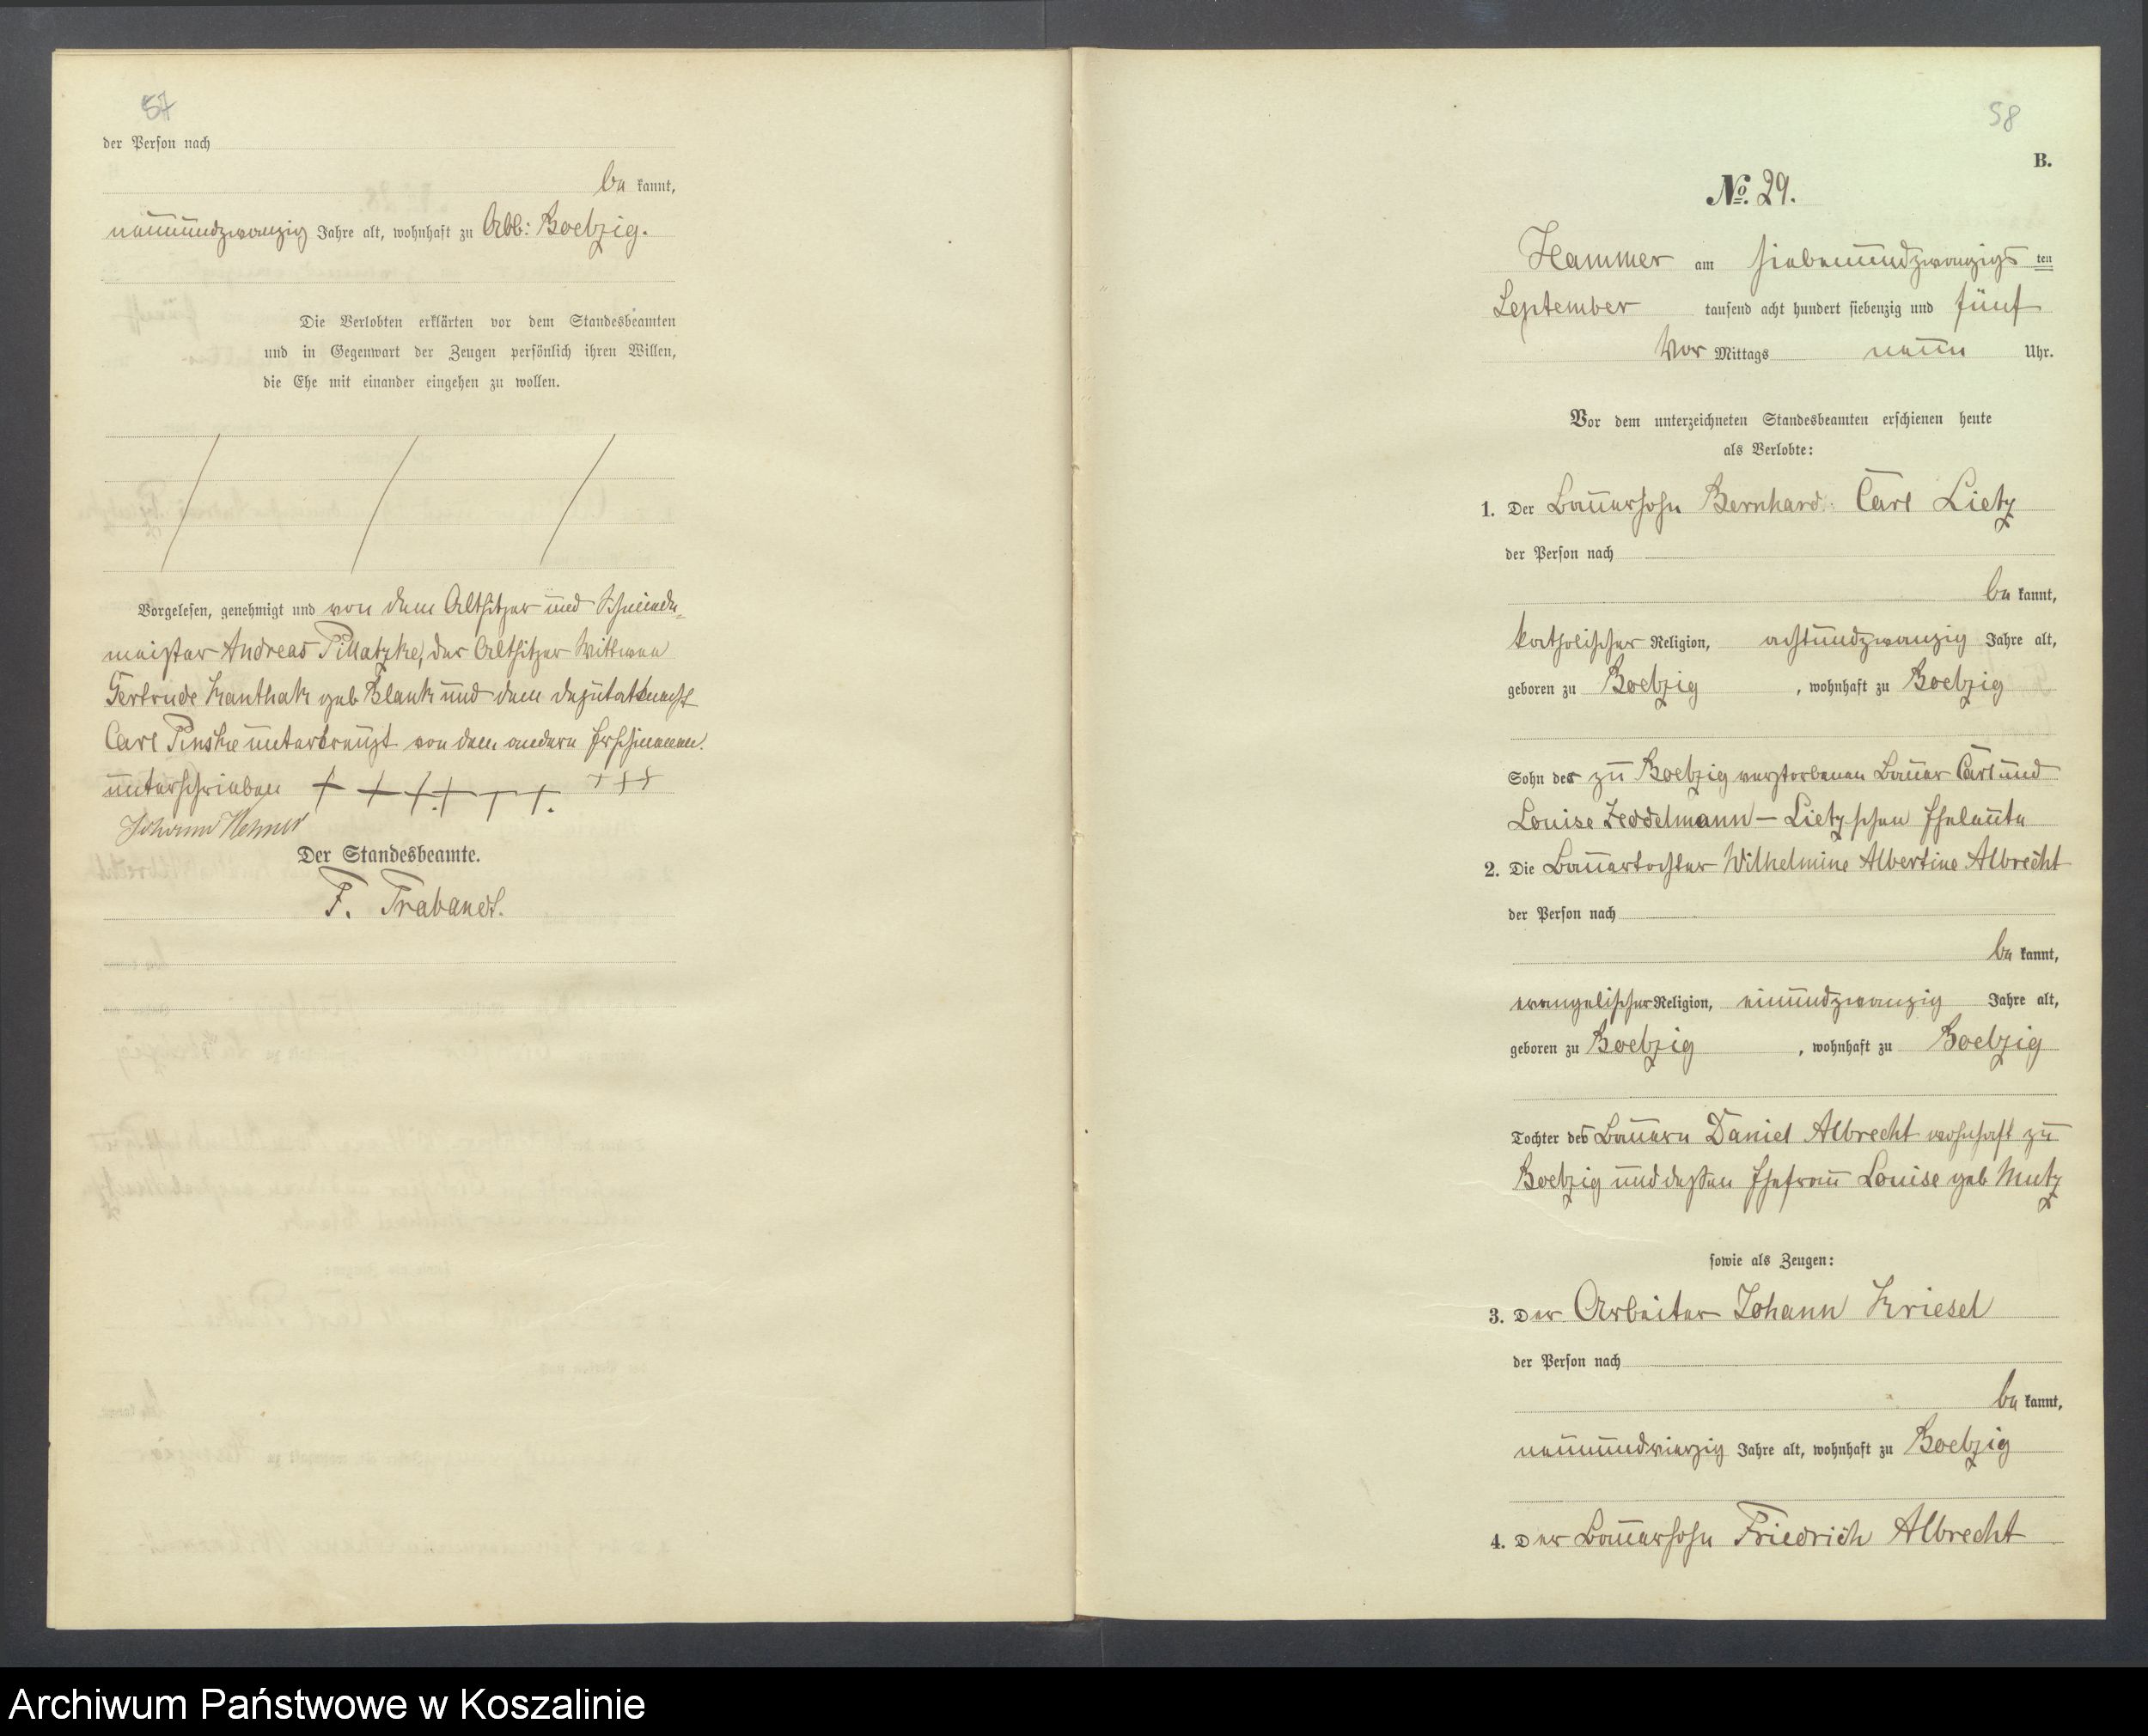 57
der Person nach
be kannt,
neunundzwanzig Jahre alt, wohnhaft zu Abb: Boebzig.
Die Verlobten erklärten vor dem Standesbeamten
und in Gegenwart der Zeugen persönlich ihren Willen,
die Ehe mit einander eingehen zu wollen.
Vorgelesen, genehmigt und von dem Altsitzer und Schmiede-
meister Andreas Pillatzke, der Altsitzer Wittwee
Gertrude Kanthak geb Blank und dem Deputatknecht
Carl Pinske unterkreuzt von dem andern Erschienenen.
unterschrieben + + + + + + + + +
Johann
Der Standesbeamte.
F. Trabandt.
58
B.
No. 29.
Hammer am siebenundzwanzigs ten
September tausend acht hundert siebenzig und fünf
Vor Mittags neun Uhr.
Vor dem unterzeichneten Standesbeamten erschienen heute
als Verlobte:
1. Der Bauersohn Bernhard Carl Lietz
der Person nach
be kannt,
katholischer Religion, achtundzwanzig Jahre alt,
geboren zu Boebzig , wohnhaft zu Boebzig
Sohn der zu Boebzig verstorbenen Bauer Carl und
Louise Zeddelmann – Lietzschen Eheleute
2. Die Bauertochter Wilhelmine Albertine Albrecht
der Person nach
be kannt,
evangelischer Religion, einundzwanzig Jahre alt,
geboren zu Boebzig , wohnhaft zu Boebzig
Tochter des Bauern Daniel Albrecht wohnhaft zu
Boebzig und dessen Ehefrau Louise geb Mutz
sowie als Zeugen:
3. Der Arbeiter Johann Kriesel
der Person nach
be kannt,
neunundvierzig Jahre alt, wohnhaft zu Boebzig
4. Der Bauersohn Friedrich Albrecht
Archiwum Państwowe w Koszalinie